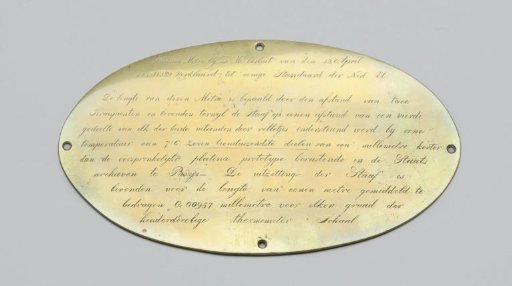 Deze Metre bij Z. M. besluit van den 13 April
verklaard tot eenige Standaard der Ned. El
De lengte van dezen Metre is bepaald door den afstand van twee
kruispunten en bevonden terwijl de Staaf op eenen afstand van een vierde
gedeelte van elk der beide uiteinden door rolletjes ondersteund werd bij eene
temperatuur van 7°6 zeven honduizendste deelen van een millemetre korter
dan de oorspronkelijke platena prototype berustende in de Staats
archieven te Parijs — De uitzetting der Staaf is
bevonden voor de lengte van eenen metre gemiddeld te
bedragen 0,00957 millemetre voor elken graad der
honderddeelige thermometer Schaal